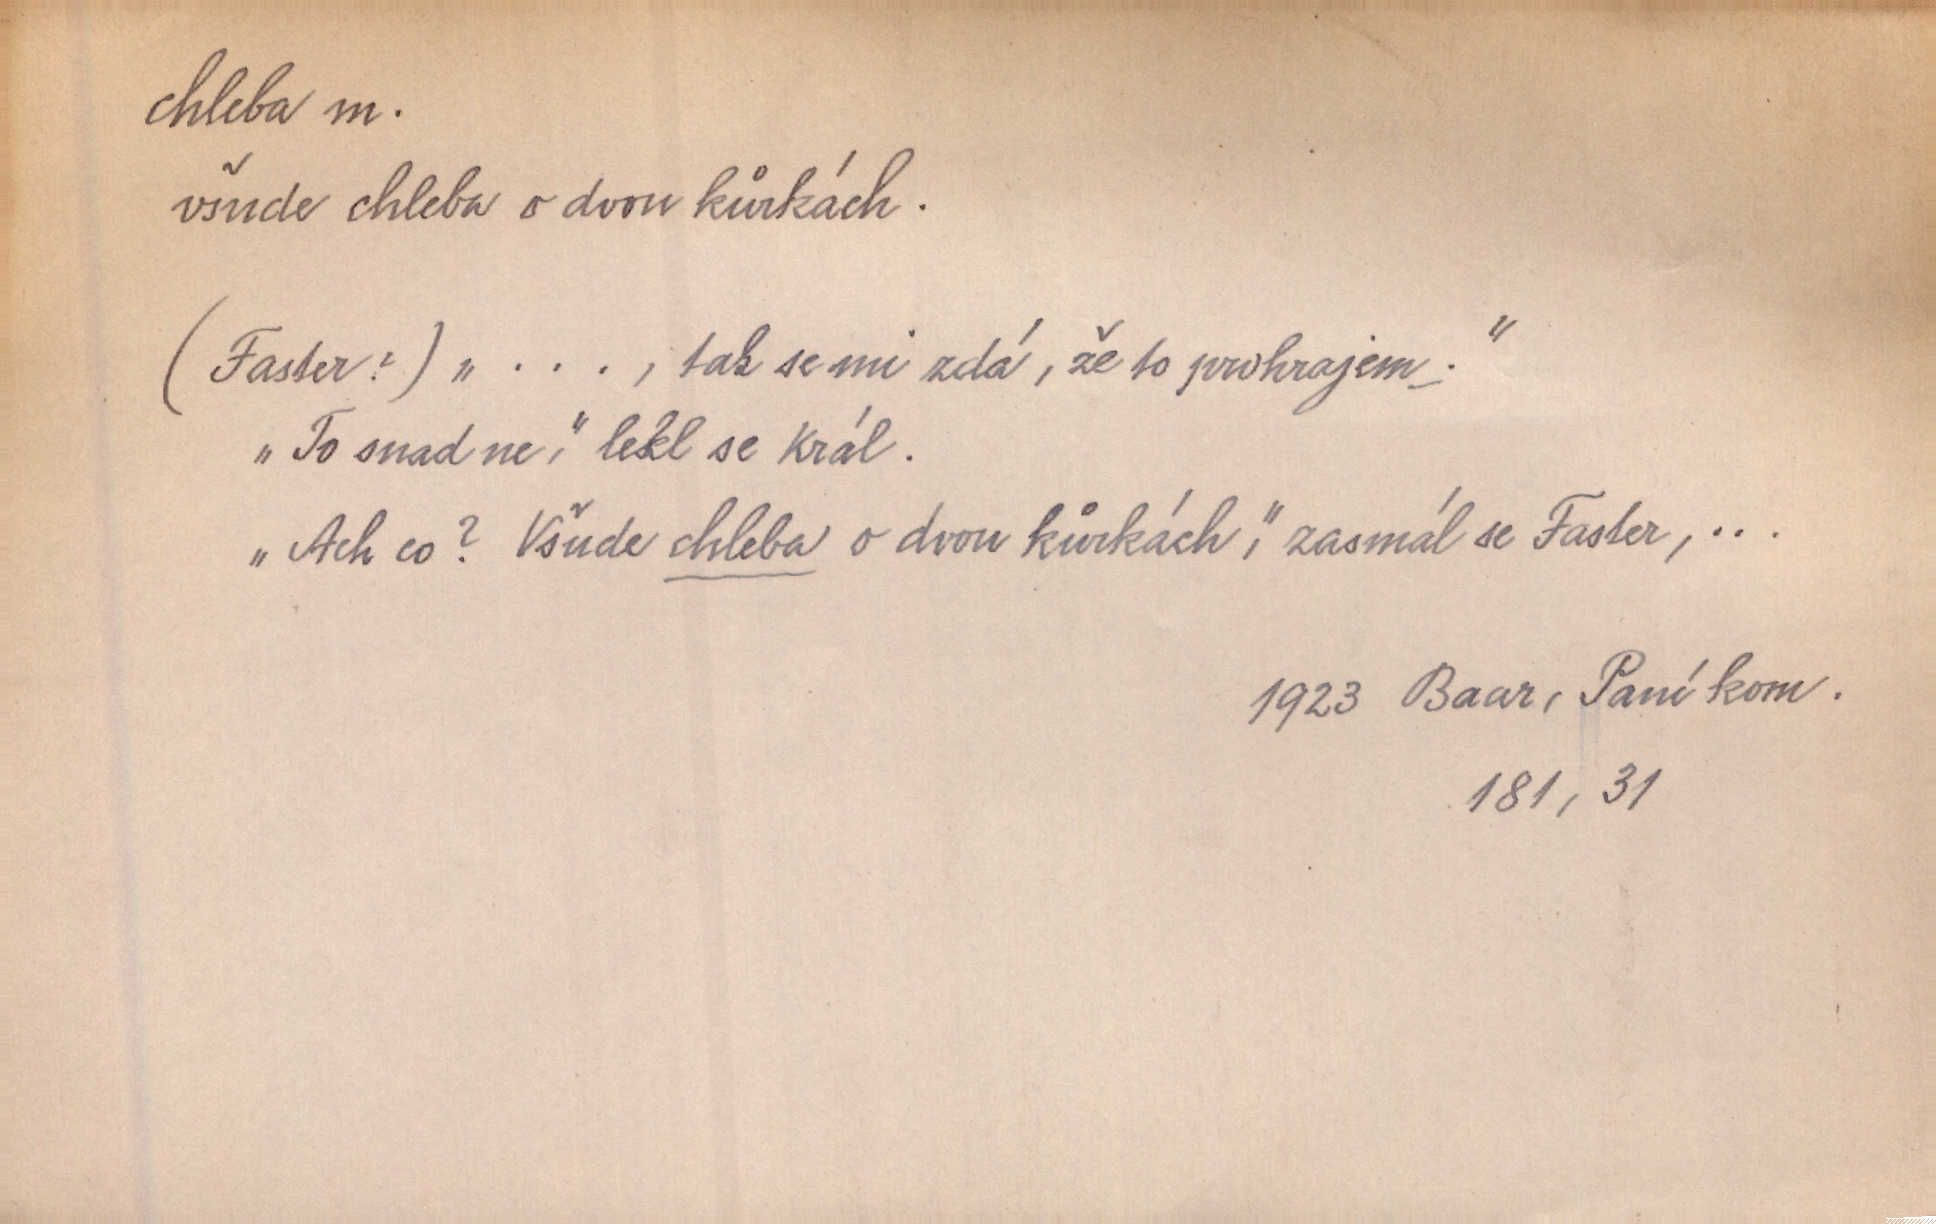 chleba m.
všude chleba o dvou kůrkách.
(Faster:) „ . . . , tak se mi zdá, že to prohrajem."
„To snad ne," lekl se Král.
„Ach co? Všude chleba o dvou kůrkách," zasmál se Faster, . . .
1923 Baar, Paní kom.
181, 31